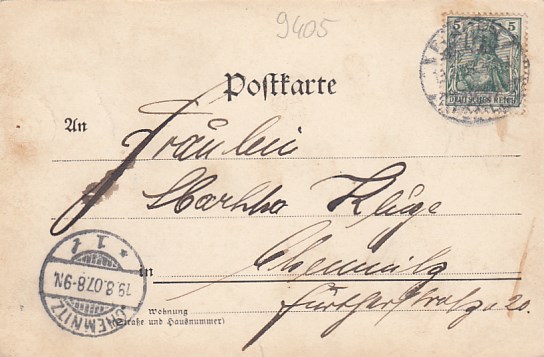 9405
5 5
DEUTSCHES REICH
Postkarte
An
Fräulein
Martha Kluge
in Chemnitz
Fürtherstraße 20.
Wohnung
(Straße und Hausnummer)
* 1 f
19.8.07.8-9N.
CHEMNITZ